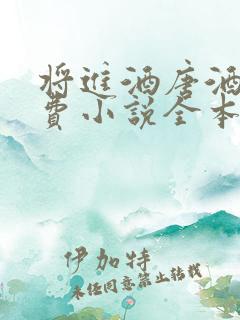 将进酒唐酒
费小说全本
伊加特
未经同意禁止转载